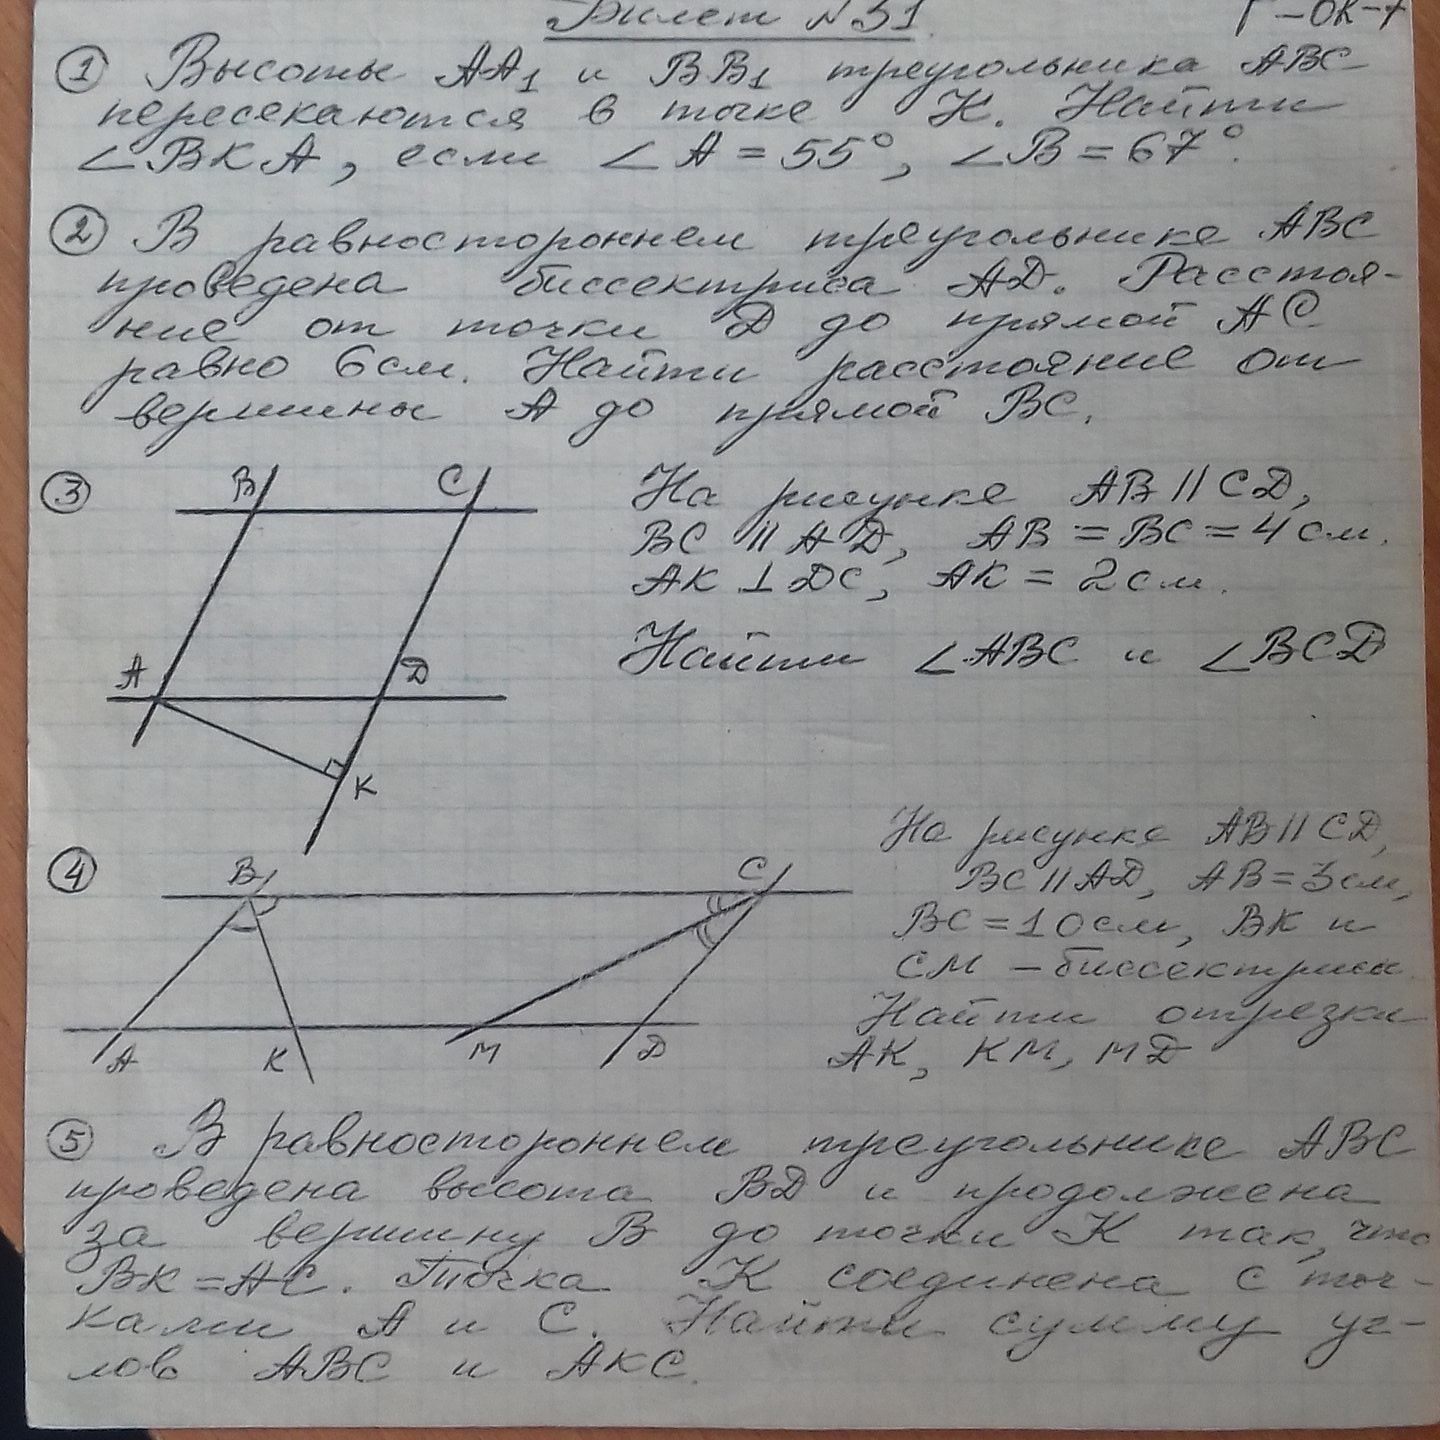 Билет №31
Г-ОК-7
① Высоты АА₁ и ВВ₁ треугольника АВС
пересекаются в точке К. Найти
∠ВКА, если ∠А = 55°, ∠В = 67°.
② В равностороннем треугольнике АВС
проведена биссектриса АD. Расстоя-
ние от точки D до прямой АС
равно 6 см. Найти расстояние от
вершины А до прямой ВС.
③ На рисунке АВ || CD,
ВС || АD, АВ = ВС = 4 см.
АК ⊥ DC, АК = 2 см.
Найти ∠АВС и ∠BCD
B C
A D
K
④ На рисунке АВ || CD,
ВС || АD, АВ = 3 см,
ВС = 10 см, ВК и
СМ – биссектрисы
Найти отрезки
АК, КМ, МD
B C
A K M D
⑤ В равностороннем треугольнике АВС
проведена высота ВD и продолжена
за вершину В до точки К так, что
ВК = АС. Точка К соединена с точ-
ками А и С. Найти сумму уг-
лов АВС и АКС.